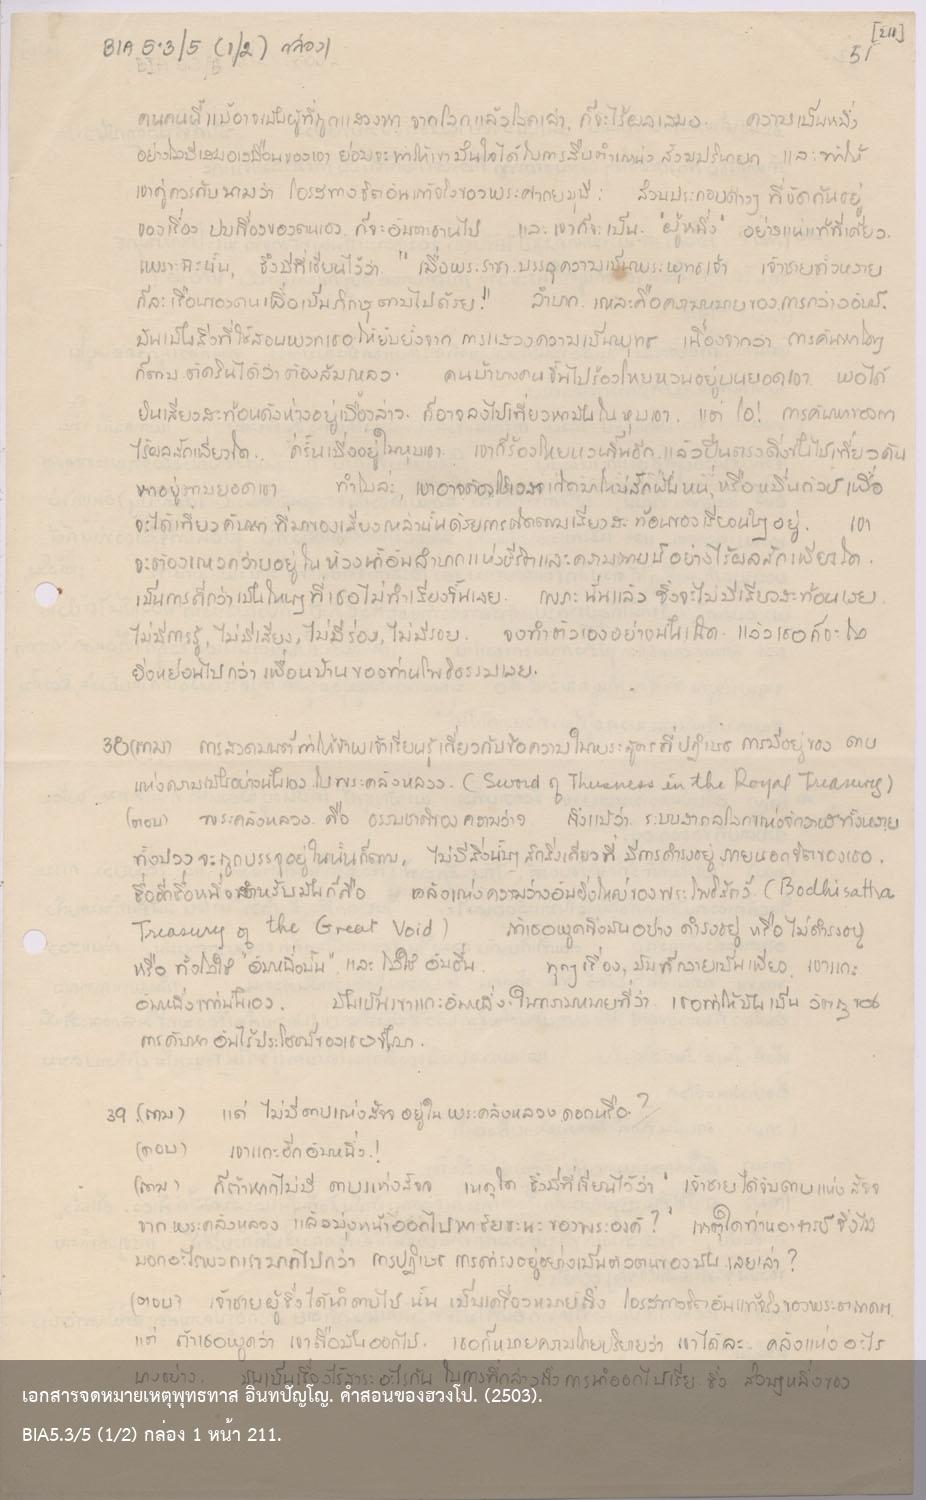 BIA 5.3/5 (1/2) กล่อง 1
[211]
51
คนคนนี้แม้อาจเป็นผู้ที่ถูกแสวงหา จากโลกแล้วโลกเล่า, ก็จะไร้ผลเสมอ. ความเป็นหนึ่ง
อย่างไม่มีเสมอเหมือนของเขา ย่อมจะทำให้เขามั่นใจได้ในการสืบตำแหน่ง สังฆปริณายก และทำให้
เขาคู่ควรกับนามว่า โอรสทางจิตอันแท้จริงของพระศากยมุนี: ส่วนประกอบต่างๆ ที่ขัดกันอยู่
ของเรื่อง ปมเขื่องของตนเอง ก็จะอันตรธานไป และเขาก็จะเป็น "ผู้หนึ่ง" อย่างแน่แท้ทีเดียว.
เพราะฉะนั้น, จึงมีที่เขียนไว้ว่า "เมื่อพระราชาบรรลุความเป็นพระพุทธเจ้า เจ้าชายทั้งหลาย
ก็ละเรือนของตนเพื่อเป็นภิกษุตามไปด้วย!" ลำบาก เหละคือความหมายของการกล่าวอันนี้.
มันเป็นสิ่งที่ใช้สอนพวกเธอให้ยับยั้งจาก การแสวงความเป็นพุทธ เนื่องจากว่า การค้นหาใดๆ
ก็ตาม ตัดสินได้ว่าต้องล้มเหลว. คนบ้าบางคนขึ้นไปร้องโหยหวนอยู่บนยอดเขา พอได้
ยินเสียงสะท้อนดังห่างอยู่เบื้องล่าง ก็อาจลงไปเที่ยวหามันในหุบเขา. แต่ โอ! การค้นหาของเขา
ไร้ผลสักเพียงใด. ครั้นเมื่ออยู่ในหุบเขา เขาก็ร้องโหยหวนขึ้นอีก แล้วปีนตรงดิ่งขึ้นไปเที่ยวค้น
หาอยู่ตามยอดเขา ทำไมล่ะ, เขาอาจต้องเกิดมาใหม่สักพันหน, หรือหมื่นกัลป์ เพื่อ
จะได้เที่ยวค้นหา ที่มาของเสียงเหล่านั้นด้วยการติดตามเสียงสะท้อนของเสียงนั้นๆ อยู่. เขา
จะต้องแหวกว่ายอยู่ในห้วงน้ำอันลำบากแห่งชีวิตและความตายนี้ อย่างไร้ผลสักเพียงใด.
เป็นการดีกว่าเป็นไหนๆ ที่เธอไม่ทำเสียงขึ้นเลย. เพราะนั่นแล้ว ซึ่งจะไม่มีเสียงสะท้อนเลย.
ไม่มีการรู้, ไม่มีเสียง, ไม่มีร่อง, ไม่มีรอย. จงทำตัวเองอย่างนั้นเถิด แล้วเธอก็จะไม่
ยิ่งหย่อนไปกว่า เพื่อนบ้านของท่านโพธิธรรมเลย.
38 (ถาม) การสวดมนต์ทำให้ข้าพเจ้าเรียนรู้เกี่ยวกับข้อความในพระสูตรที่ปฏิเสธ การมีอยู่ของ ดาบ
แห่งความเป็นอย่างนั้นเอง ในพระคลังหลวง. (Sword of Thusness in the Royal Treasury)
(ตอบ) พระคลังหลวง คือ ธรรมชาติของความว่าง ถึงแม้ว่า ระบบสากลโลกแห่งจักรวาลทั้งหลาย
ทั้งปวง จะถูกบรรจุอยู่ในนั้นก็ตาม, ไม่มีสิ่งนั้นๆ สักสิ่งเดียวที่ มีการดำรงอยู่ ภายนอกจิตของเธอ.
ชื่ออีกชื่อหนึ่งสำหรับมันก็คือ คลังแห่งความว่างอันยิ่งใหญ่ของพระโพธิสัตว์ (Bodhisattva
Treasury of the Great Void) ถ้าเธอพูดถึงมันอย่าง ดำรงอยู่ หรือ ไม่ดำรงอยู่
หรือ ทั้งไม่ใช่ "อันหนึ่งนั้น" และ ไม่ใช่ อันอื่น. ทุกๆ เรื่อง, มันก็กลายเป็นเพียง เขาแกะ
อันหนึ่งเท่านั้นเอง. มันเป็นเขาแกะอันหนึ่ง ในความหมายที่ว่า เธอทำให้มันเป็น วัตถุของ
การค้นหา อันไร้ประโยชน์ของเธอขึ้นมา.
39 (ถาม) แต่ ไม่มีดาบแห่งสัจจ อยู่ใน พระคลังหลวง ดอกหรือ?
(ตอบ) เขาแกะอีกอันหนึ่ง!
(ถาม) ก็ถ้าหากไม่มี ดาบแห่งสัจจ เหตุใด จึงมีที่เขียนไว้ว่า ' เจ้าชายได้จับดาบแห่งสัจจ
จาก พระคลังหลวง แล้วมุ่งหน้าออกไปหาชัยชนะของพระองค์?' เหตุใดท่านอาจารย์ จึงไม่
บอกอะไรพวกเรามากไปกว่า การปฏิเสธ การดำรงอยู่อย่างเป็นตัวตนของมัน เลยเล่า?
(ตอบ) เจ้าชายผู้ซึ่งได้นำดาบไป นั้น เป็นเครื่องหมายถึง โอรสทางจิตอันแท้จริงของพระตถาคต.
แต่ ถ้าเธอพูดว่า เขาถือมันออกไป. เธอก็หมายความโดยปริยายว่า เขาได้ละ คลังแห่ง อะไร
บางอย่าง. มันเป็นเรื่องไร้สาระอะไรกัน ในการที่กล่าวถึง การนำออกไปเสีย ซึ่ง ส่วนๆหนึ่งของ
เอกสารจดหมายเหตุพุทธทาส อินทปัญโญ. คำสอนของฮวงโป. (2503).
BIA5.3/5 (1/2) กล่อง 1 หน้า 211.